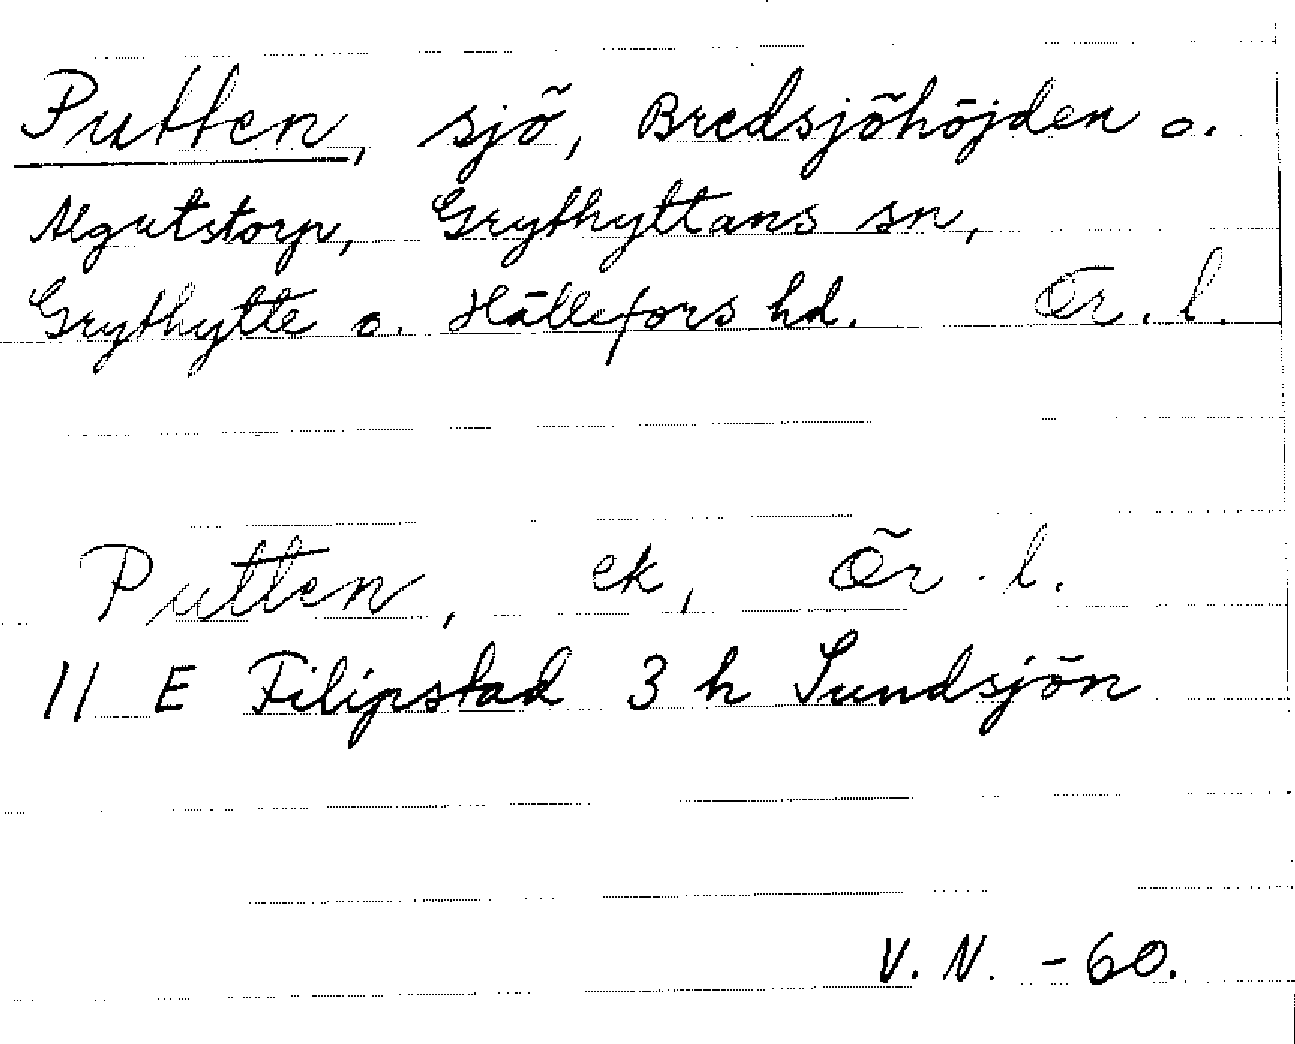 Putten, sjö, Bredsjöhöjden o.
Algutstorp, Grythyttans sn,
Grythytte o. Hällefors hd. Ör. l.
Putten, ek, Ör. l.
11 E Filipstad 3 h Sundsjön
V. N. -60.